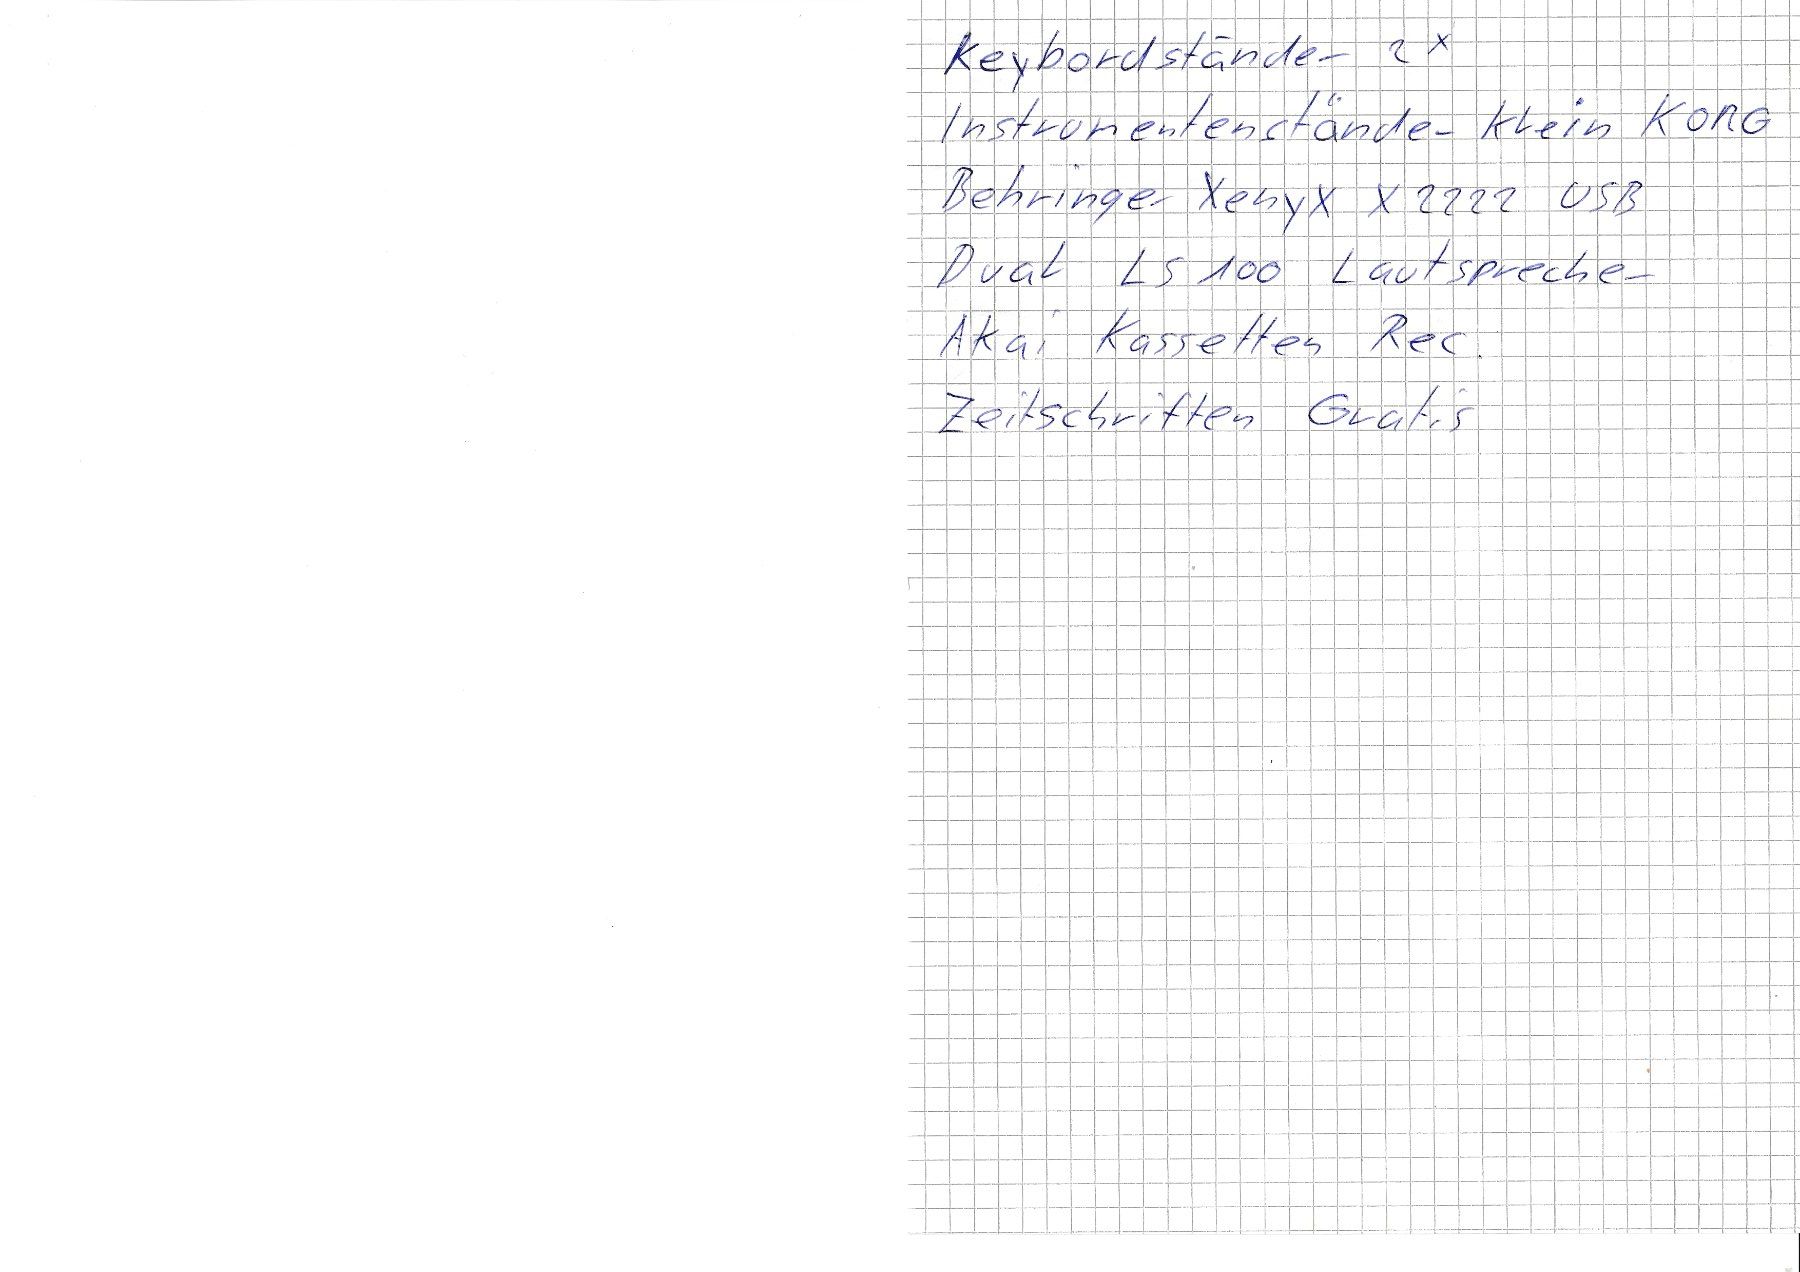 Keybordständer 2x
Instrumentenständer klein KORG
Behringer XenyX X2222 USB
Dual LS 100 Lautsprecher
Akai Kassetten Rec.
Zeitschriften Gratis